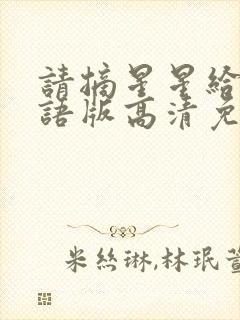 請摘星星給
語版高清免
米絲琳,林珉萱